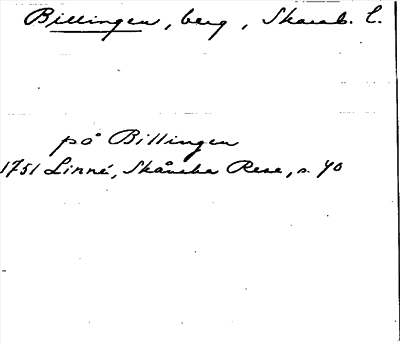 Billingen, berg, Skarab. l.
på Billingen
1751 Linné, Skånska Resa, s. 40